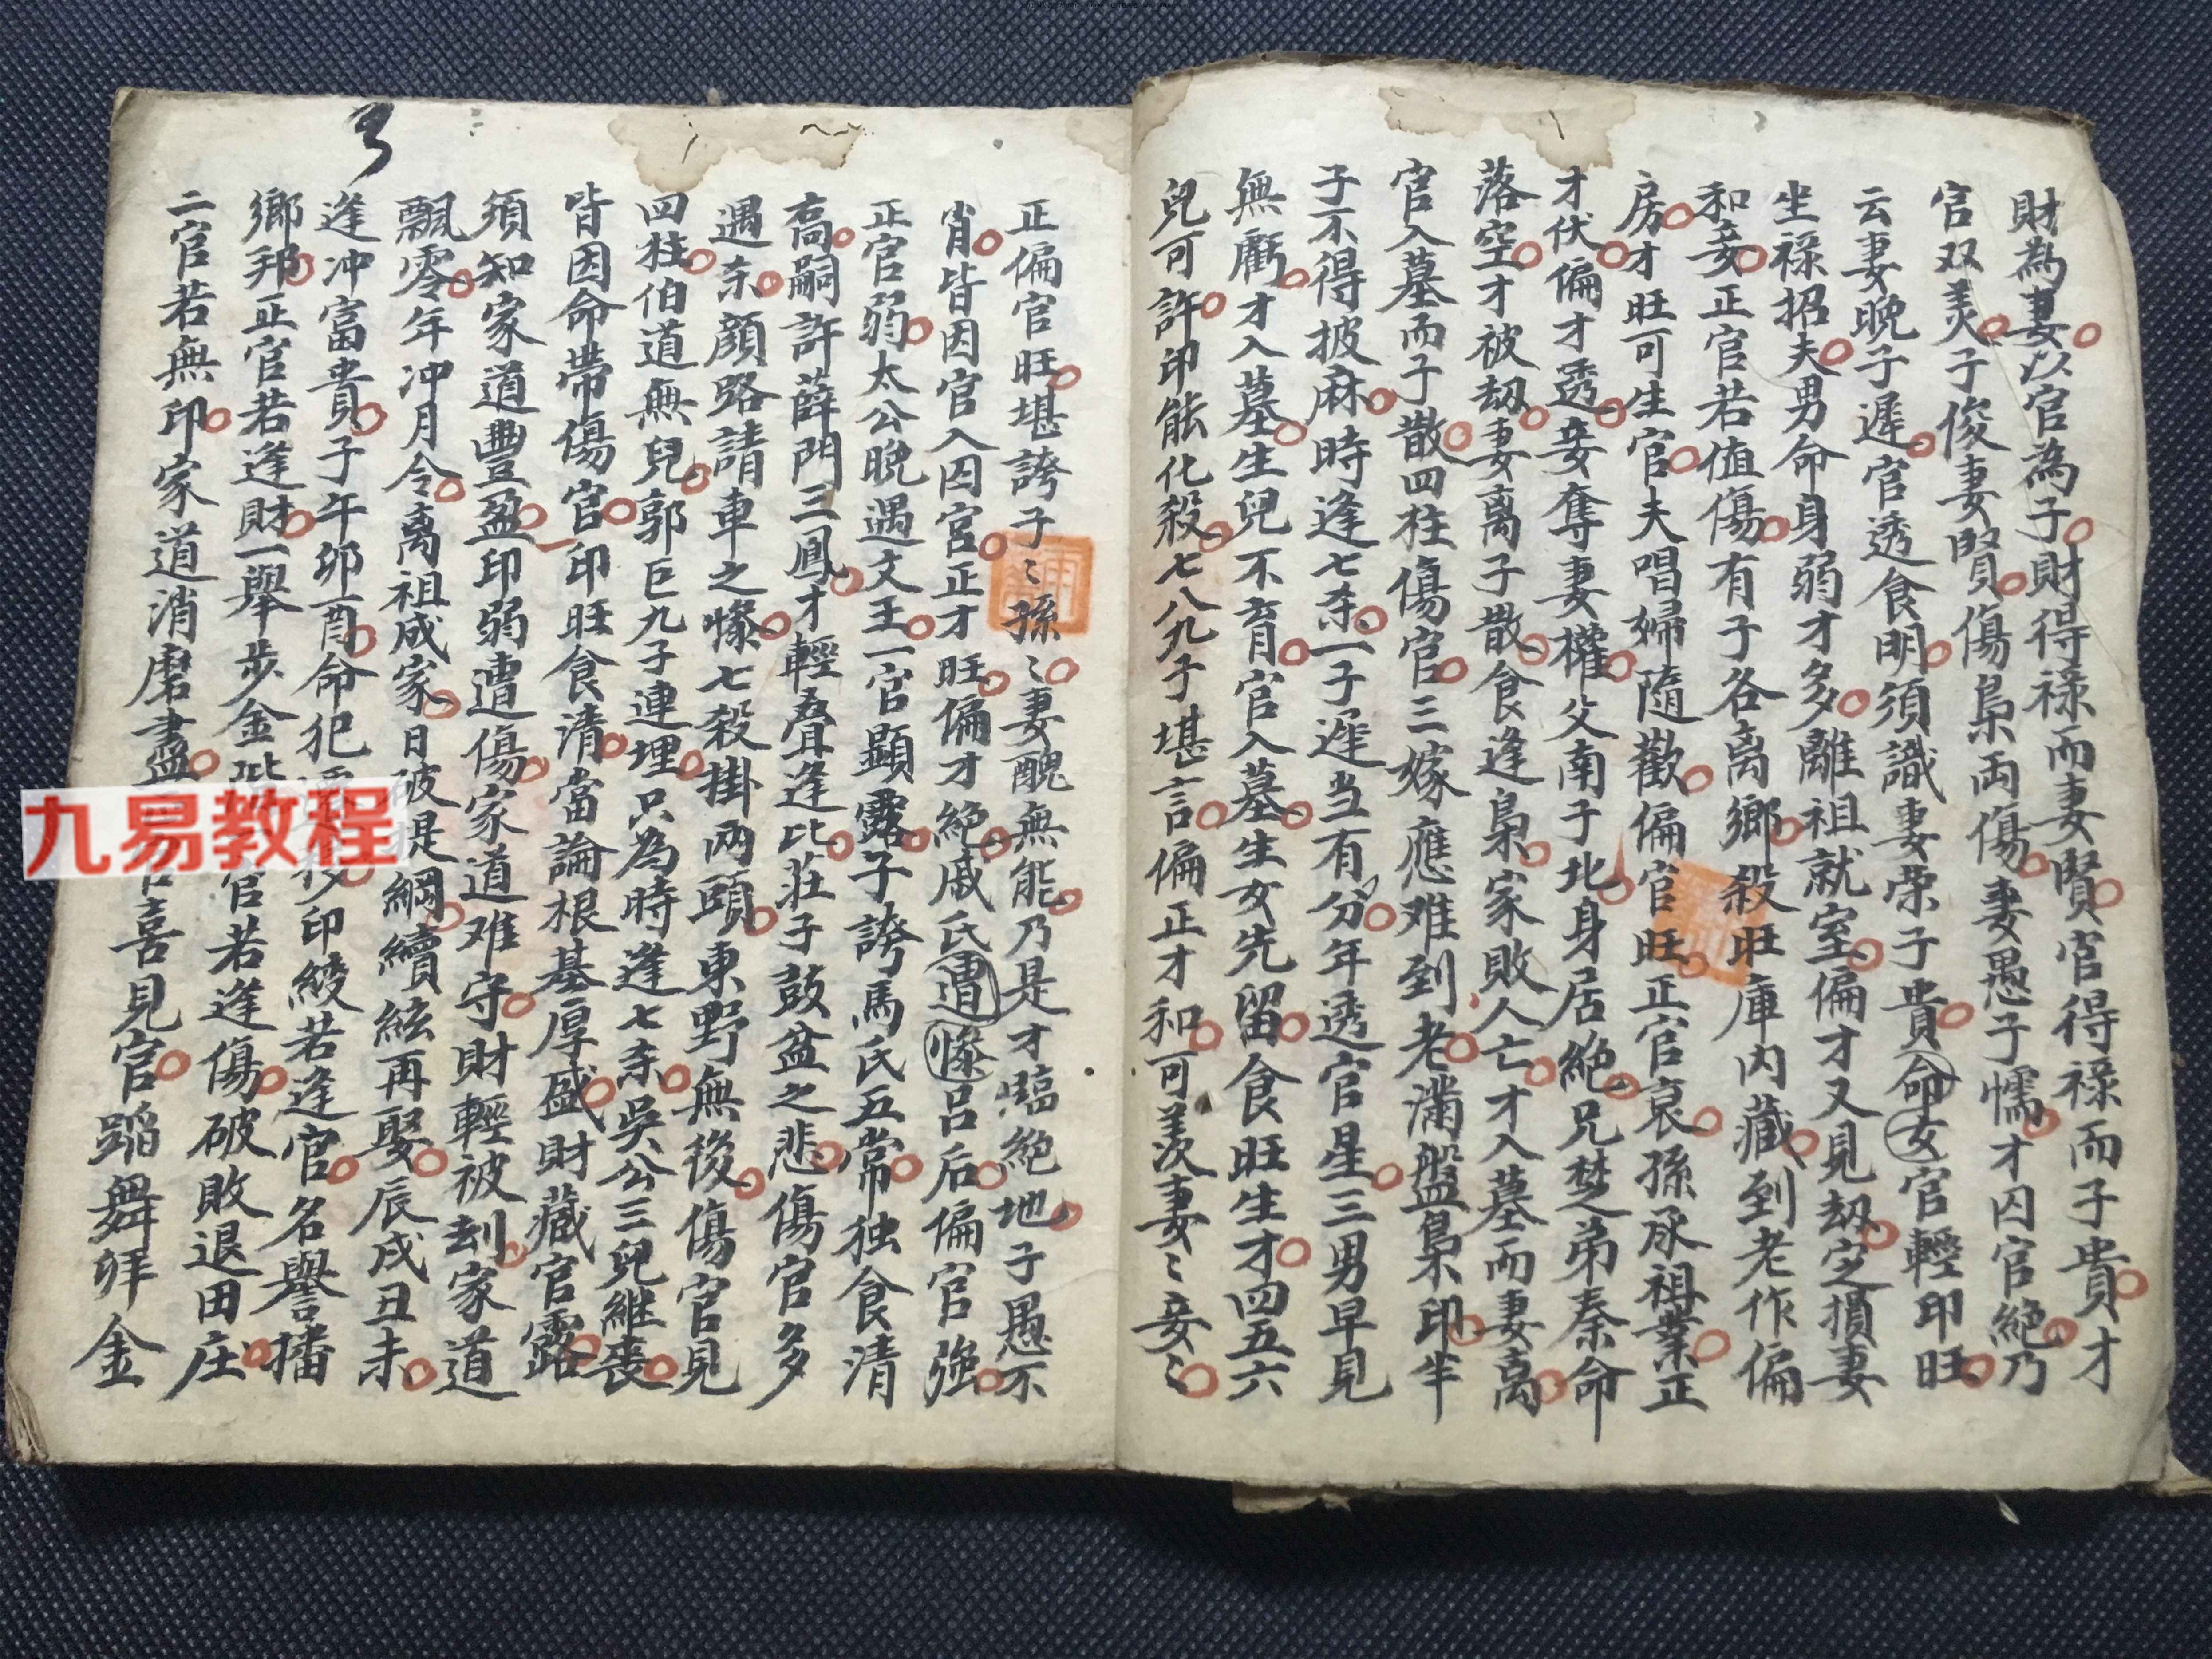 財為妻以官為子財得祿而妻賢官得祿而子貴才
官双美子俊妻賢傷梟両傷妻愚子懦才囚官絶乃
云妻晩子遲官透食明須識妻荣子貴命女官輕印旺
坐祿招夫男命身弱才多離祖就室偏才又見刼定損妻
和妾正官若值傷有子各离鄉殺旺庫内藏到老作偏
房才旺可生官夫唱婦隨歡偏官旺正官衰孫承祖業正
才伏偏才透妾奪妻權父南子北身居絶兄楚弟秦命
落空才被刼妻离子散食逢梟家敗人亡才入墓而妻离
官入墓而子散四柱傷官三嫁應难到老滿盤梟印半
子不得披麻時逢七杀一子遲当有分年透官星三男早見
無虧才入墓生兒不育官入墓生女先留食旺生才四五六
兒可許印能化殺七八九子堪言偏正才和可羡妻〻妾〻
正偏官旺堪誇子〻孫〻妻醜無能乃是才臨絶地子愚不
肖皆因官入囚宮正才旺偏才絶戚氏遭慘吕后偏官強
正官弱太公晩遇文王一官顯露子誇馬氏五常独食清
高嗣許薛門三鳳才輕疊逢比莊子鼓盆之悲傷官多
遇杀顏路請車之慘七殺掛兩頭東野無後傷官見
四柱伯道無兒郭巨九子連埋只為時逢七杀吳公三兒継喪
皆因命帶傷官印旺食清當論根基厚盛財藏官露
須知家道豐盈印弱遭傷家道难守財輕被刦家道
飄零年冲月令离祖成家日破提綱續絃再娶辰戌丑未
逢冲富貴子午卯酉命犯印綬若逢官名譽播
鄉邦正官若逢財一舉步金階官若逢傷破敗退田庄
二官若無印家道消磨盡喜見官蹈舞拜金
九易教程